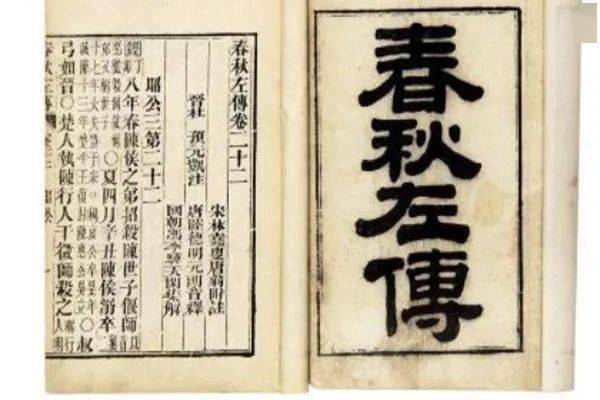 春秋左傳
春秋左傳卷二十二
宋林堯叟唐翁附註
晉杜 預元凱注 唐陸德明元朗音釋
國朝馮李驊天閑集解
昭公三第二十二
八年春陳侯之弟招殺陳世子偃師
○夏四月辛丑陳侯溺卒
十七年大夫盟于宋○
○叔
弓如晉○楚人執陳行人干徵師殺之
春秋左傳
昭公